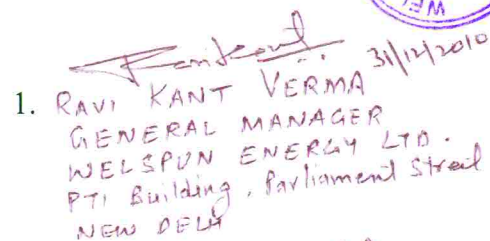 WEL
31/12/2010
1. RAVI KANT VERMA
GENERAL MANAGER
WELSPUN ENERGY LTD.
PTI Building, Parliament Street
NEW DELHI